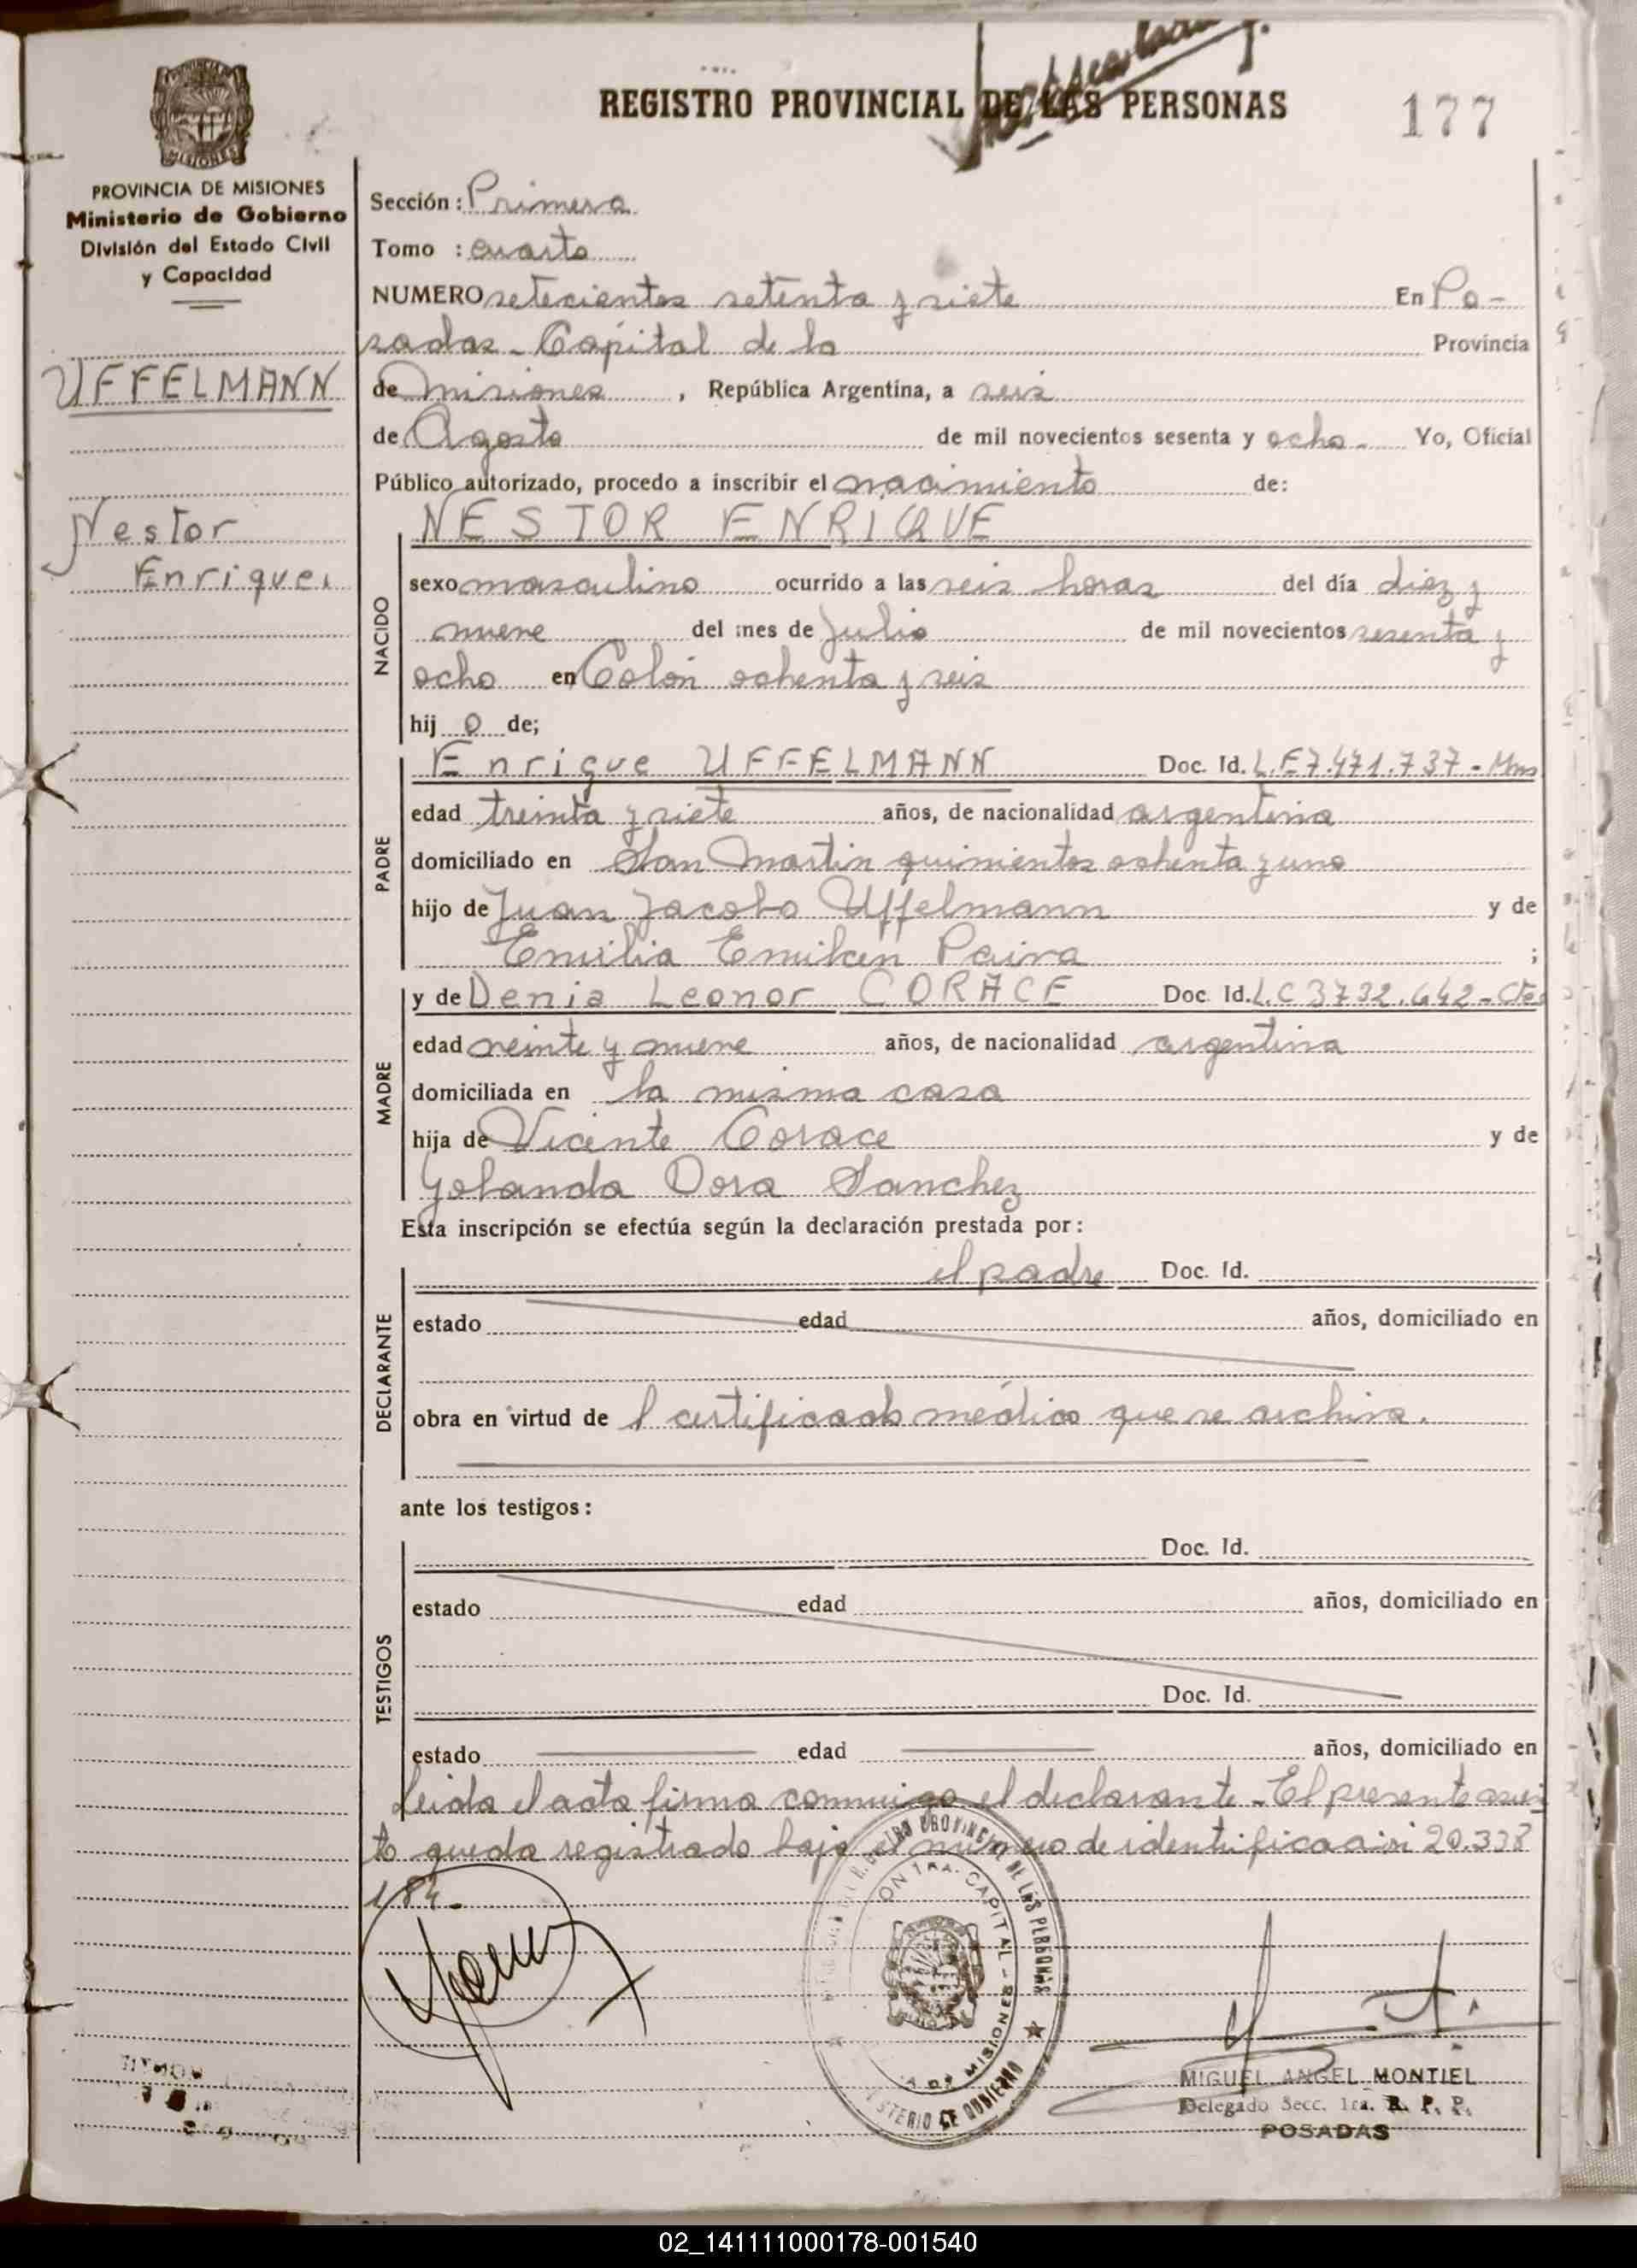 REGISTRO PROVINCIAL DE LAS PERSONAS
177
PROVINCIA DE MISIONES
Ministerio de Gobierno
División del Estado Civil
y Capacidad
UFFELMANN
Nestor
Enrique
Sección: Primera
Tomo : cuarto
NUMERO setecientos setenta y siete En Po-
sadas - Capital de la Provincia
de misiones, República Argentina, a seis
de Agosto de mil novecientos sesenta y ocho - Yo, Oficial
Público autorizado, procedo a inscribir el nacimiento de:
NESTOR ENRIQUE
NACIDO
sexo masculino ocurrido a las seis horas del día diez y
nueve del mes de Julio de mil novecientos sesenta y
ocho en Colón ochenta y seis
hijo de;
PADRE
Enrique UFFELMANN Doc. Id. L.E 7.471.737 - Mns
edad treinta y siete años, de nacionalidad argentina
domiciliado en San Martin quinientos ochenta y uno
hijo de Juan Jacobo Uffelmann y de
Emilia Emilcen Paiva ;
MADRE
y de Denia Leonor CORACE Doc. Id. L.C 3732.642 - Ctes
edad veinte y nueve años, de nacionalidad argentina
domiciliada en la misma casa
hija de Vicente Corace y de
Yolanda Dora Sanchez
Esta inscripción se efectúa según la declaración prestada por:
DECLARANTE
el padre Doc. Id.
estado edad años, domiciliado en
obra en virtud de l certificado médico que se archiva.
ante los testigos:
TESTIGOS
Doc. Id.
estado edad años, domiciliado en
Doc. Id.
estado edad años, domiciliado en
Leida el acta firma conmigo el declarante - El presente asien
to queda registrado bajo el numero de identificación 20.338
184.-
REGISTRO PROVINCIAL DE LAS PERSONAS
CAPITAL - MISIONES
MINISTERIO DE GOBIERNO
MIGUEL ANGEL MONTIEL
Delegado Secc. 1ra. R. P. P.
POSADAS
02_141111000178-001540